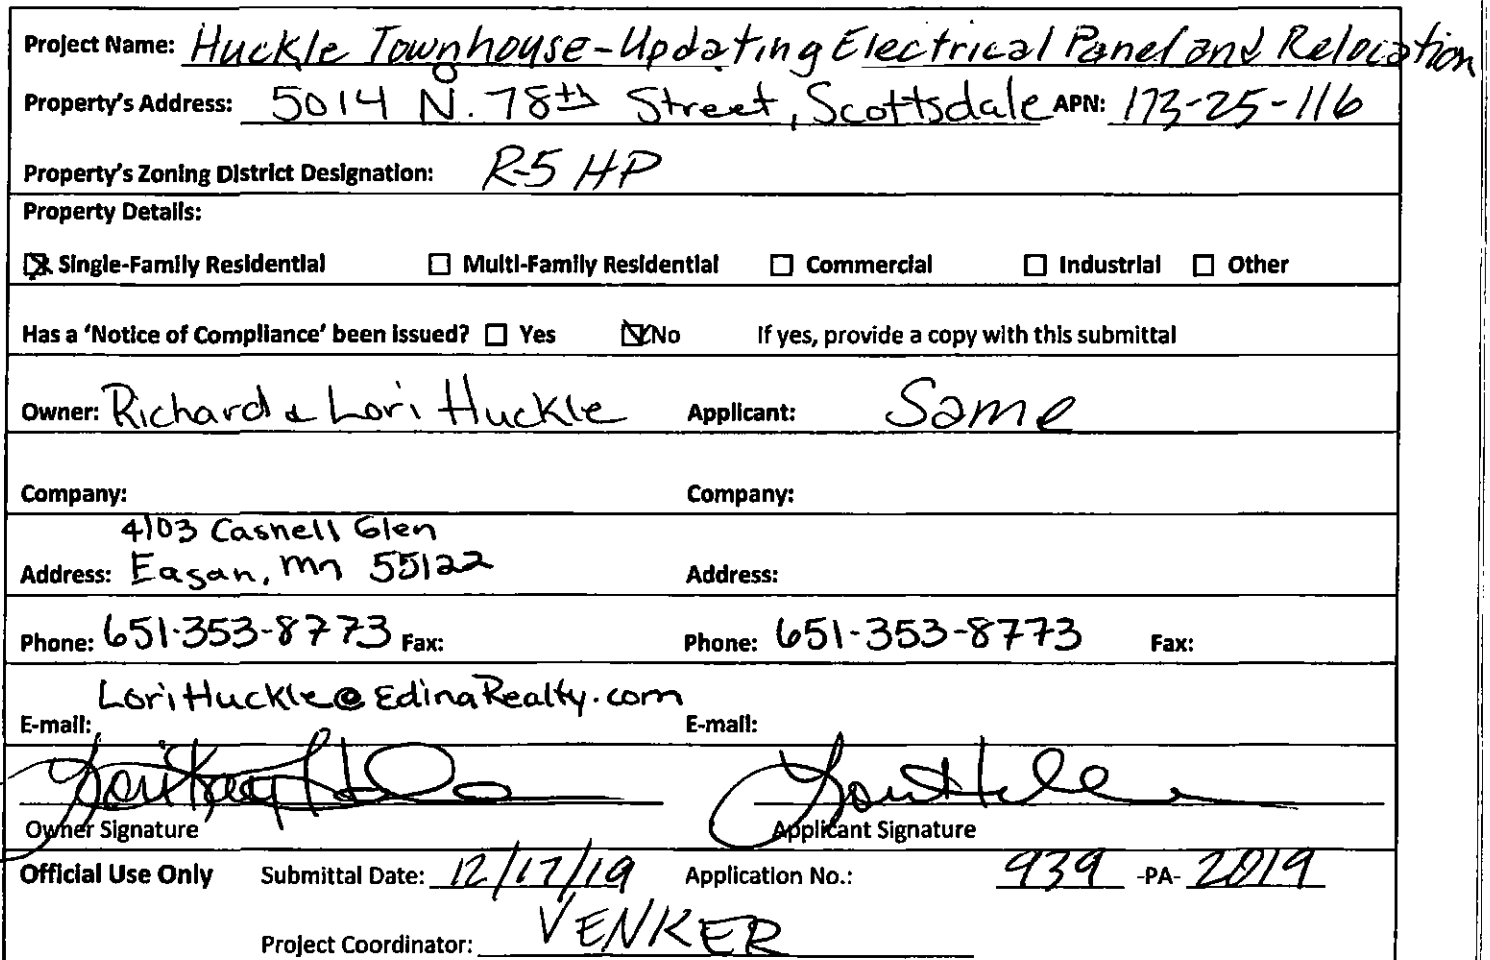 Project Name: Huckle Townhouse - Updating Electrical Panel and Relocation
Property's Address: 5014 N. 78th Street, Scottsdale APN: 173-25-116
Property's Zoning District Designation: R-5 HP
Property Details:
Single-Family Residential Multi-Family Residential Commercial Industrial Other
Has a 'Notice of Compliance' been issued? Yes No If yes, provide a copy with this submittal
Owner: Richard & Lori Huckle Applicant: Same
Company: Company:
4103 Casnell Glen
Address: Eagan, Mn 55122 Address:
Phone: 651-353-8773 Fax: Phone: 651-353-8773 Fax:
LoriHuckle@EdinaRealty.com
E-mail: E-mail:
Owner Signature Applicant Signature
Official Use Only Submittal Date: 12/17/19 Application No.: 939 -PA- 2019
Project Coordinator: VENKER